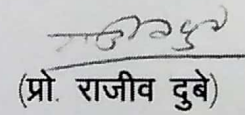 (प्रो. राजीव दुबे)